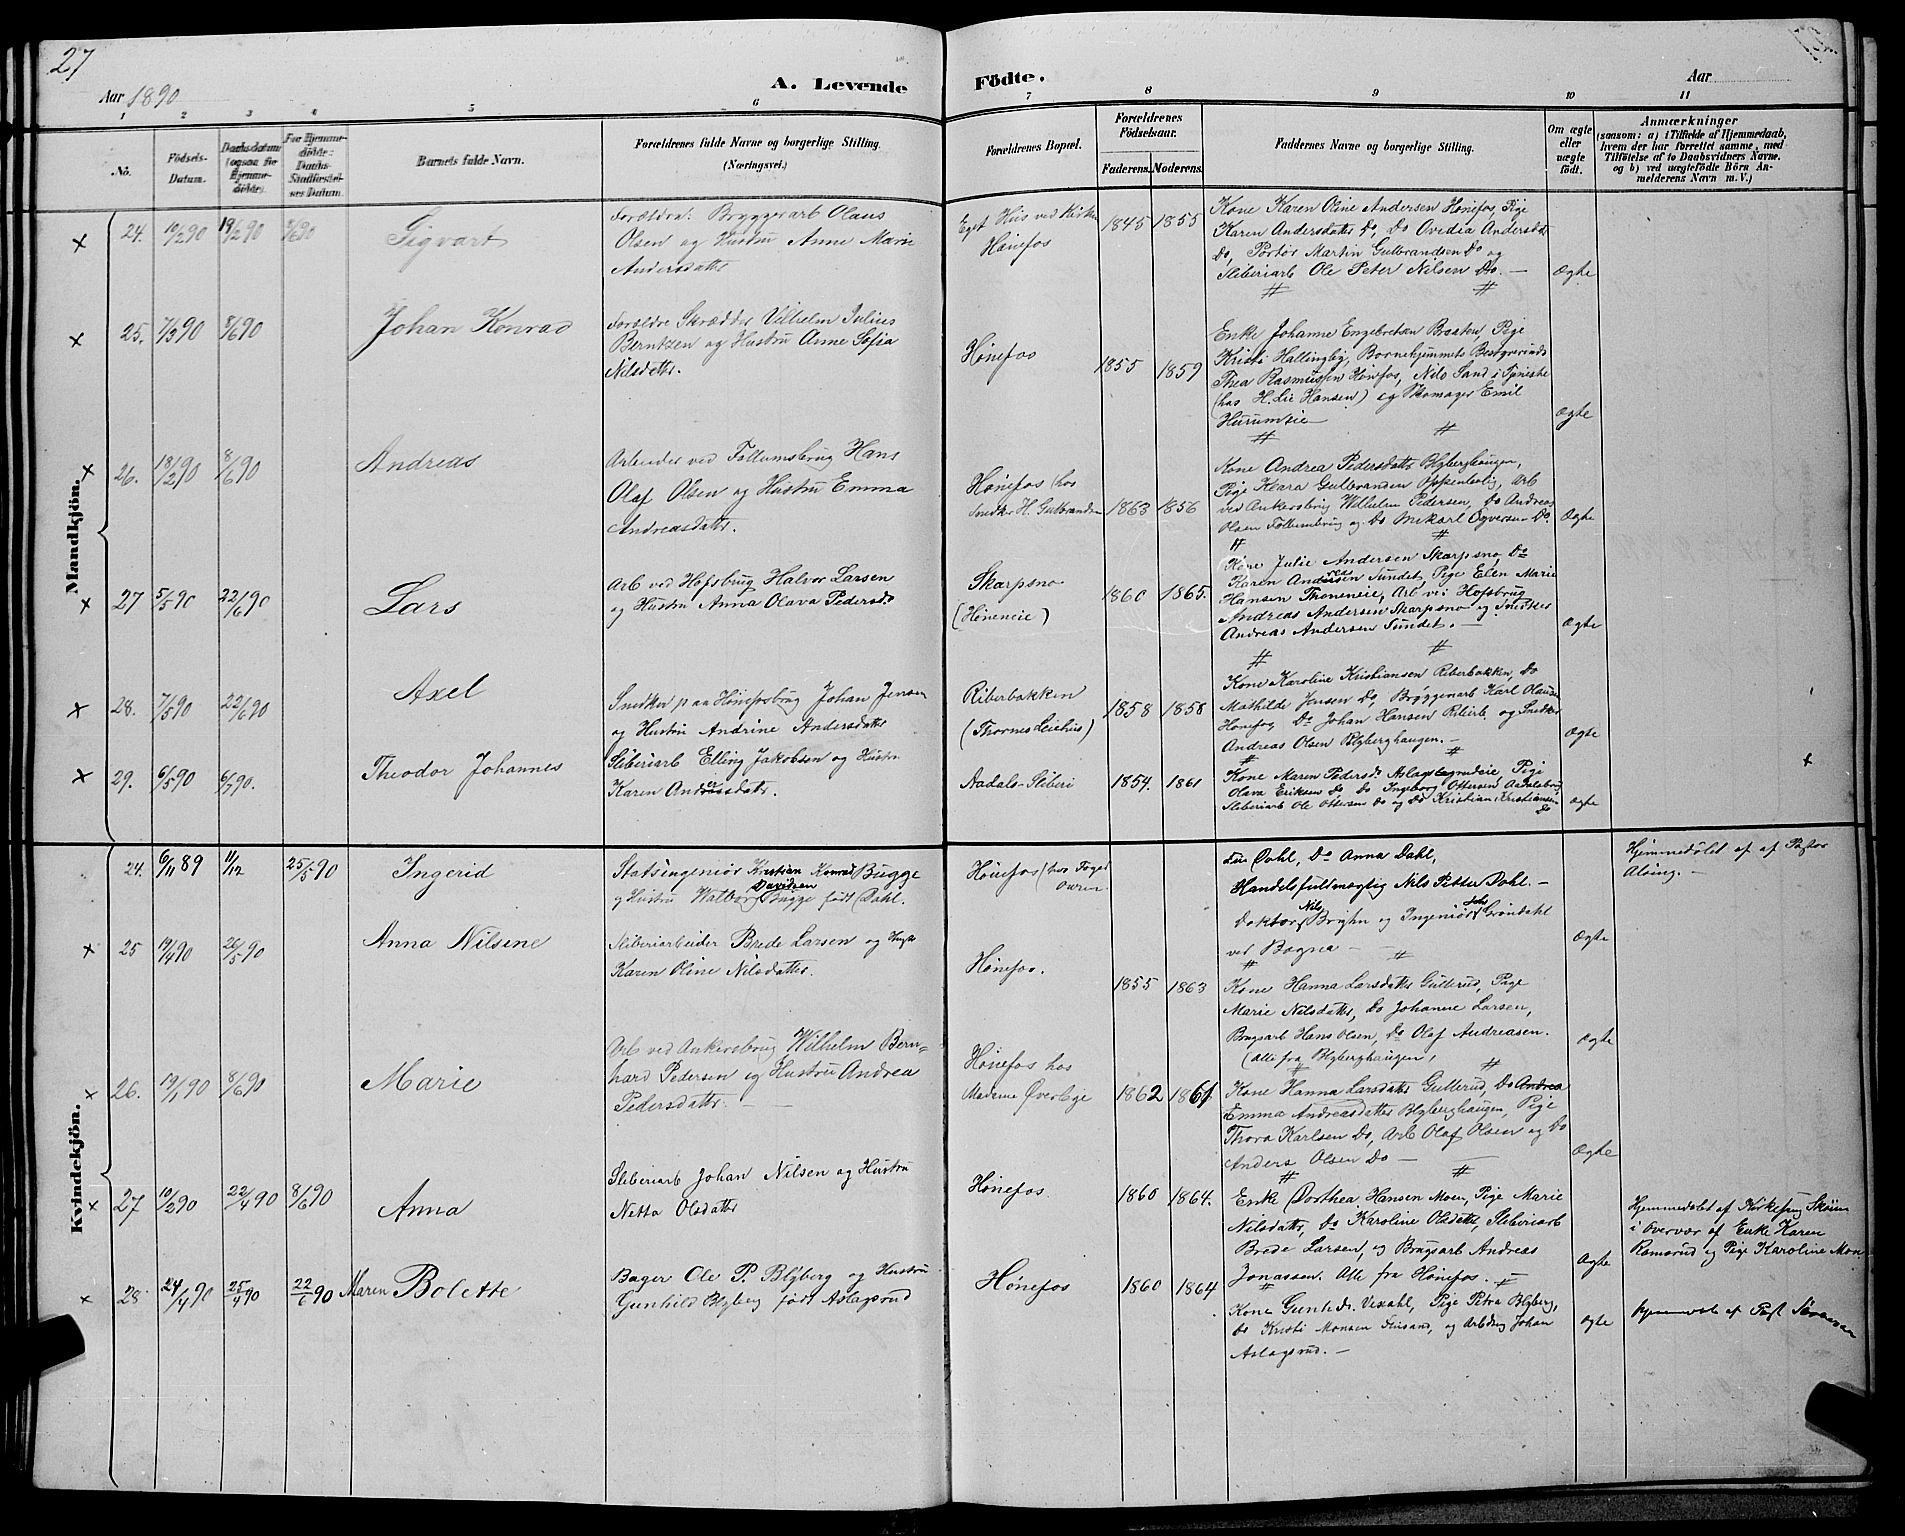 27
A. Levende Födte.
Aar 1890
Aar
1 2 3 4 5 6 7 8 9 10 11
No.
Födsels-Datum.
Daabsdatum (ogsaa for Hjemmedöbte).
For Hjemmedöbte: Daabs-Stadfæstelses Datum.
Barnets fulde Navn.
Forældrenes fulde Navne og borgerlige Stilling. (Næringsvei.)
Forældrenes Bopæl.
Forældrenes Födselsaar.
Faderens. Moderens.
Faddernes Navne og borgerlige Stilling.
Om ægte eller uægte födt.
Anmærkninger
(saasom: a) i Tilfælde af Hjemmedaab, hvem der har forrettet samme, med Tilföielse af to Daabsvidners Navne, og b) ved uægtefödte Börn Anmelderens Navn m. V.)
Mandkjön.
24. 10/2 90 19/2 90 8/6 90
Sigvart
Forældre: Bryggerarb Olaus
Olsen og Hustru Anne Marie
Andersdatter
Eget Hus ved Kirken
Hønefos
1845 1855
Kone Karen Oline Andersen Hønefos, Pige
Karen Andersdatter Do, Do Ovidia Andersdtr
Do, Portør Martin Gulbrandsen Do og
Sliberiarb Ole Peter Nilsen Do. —
Ægte
25. 7/3 90 8/6 90
Johan Konrad
Forældre Skrædder Vilhelm Julius
Berntzen og Hustru Anne Sofia
Nilsdatter.
Hønefos
1855 1859
Enke Johanne Engebretsen Braaten, Pige
Kristi Hallingby, Børnehjemmets Bestyrerinde
Thea Rasmussen Hønefos, Nils Sand i Tjeneste
(hos H. Lie Hansen) og Skomager Emil
Hurumseie
Ægte
26. 18/2 90 8/6 90
Andreas
Arbeider ved Follumsbrug Hans
Olaf Olsen og Hustru Emma
Andreasdatter.
Hønefos (hos
Snedker H. Gulbrandsen
1863 1856
Kone Andrea Pedersdatter Blyberghaugen,
Pige Klara Gulbrandsen Oppenbolig, Arb
ved Ankersbrug Wilhelm Pedersen, Do Andreas
Olsen Follumbrug og Do Mikael Syversen Do.
Ægte
27 5/5 90 22/6 90
Lars
Arb ved Hofsbrug Halvor Larsen
og Hustru Anna Olava Pedersd.
Skarpsno
(Høneneie)
1860 1865.
Kone Julie Andersen Skarpsno, Do
Karen Andersen Sundet, Pige Elen Marie
Hansen Thoreneie, Arb ved Hofsbrug
Andreas Andersen Skarpsno og Snedker
Andreas Andersen Sundet. —
Ægte
28. 7/5 90 22/6 90
Axel
Snedker paa Hønefosbrug Johan Jensen
og Hustru Andrine Andersdatter
Riberbakken
(Thornes Leiehus)
1858 1858
Kone Karoline Kristiansen Riberbakken, Do
Mathilde Jensen Do, Bryggeriarb Karl Olausen
Hønefos, Do Johan Hansen Riberb. og Snedker
Andreas Olsen Blyberghaugen. —
Ægte
29. 6/5 90 6/7 90.
Theodor Johannes
Sliberiarb Elling Jakobsen og Hustru
Karen Andreasdatr.
Aadals-Sliberi
1854. 1861
Kone Maren Pedersd. Aslagsgrudeie, Pige
Olava Eriksen Do, Do Ingeborg Ottersen Aadalsbrug
Sliberiarb Ole Ottersen Do og Do Kristian Kristiansen
Do
Ægte
Kvindekjön.
24. 6/11 89 11/12 25/5 90
Ingerid
Statsingeniør Kristian Konrad Bugge
og Hustru Walborg Davidsen Bugge født Dahl.
Hønefos (hos Foged
Owren
Frue Dahl, Do Anna Dahl,
Handelsfuldmægtig Nils Petter Dahl. —
Doktor Nils Bryhn og Ingeniør Johs Grøndahl
ved Bagna —
Ægte
Hjemmedøbt af af Pastor
Alsing. —
25 19/4 90 26/5 90
Anna Nilsine
Sliberiarbeider Brede Larsen og Hustr
Karen Oline Nilsdatter.
Hønefos.
1855 1863
Kone Hanna Larsdatter Gullerud, Pige
Marie Nilsdatter, Do Johanne Larsen,
Brugsarb Hans Olsen, Do Olaf Andreasen.
(alle fra Blyberghaugen,
Ægte
26. 19/1 90 8/6 90
Marie
Arb ved Ankersbrug Wilhelm Bern-
hard Pedersen og Hustru Andrea
Pedersdatter. —
Hønefos hos
Madame Øverbye
1862 1861
Kone Hanna Larsdatter Gullerud, Do Andrea
Emma Andreasdatter Blyberghaugen, Pige
Thora Karlsen Do, Arb Olaf Olsen og Do
Anders Olsen Do —
Ægte
27 10/2 90 22/4 90 8/6 90
Anna
Sliberiarb Johan Nilsen og Hustru
Netta Olsdatter
Hønefos.
1860 1864.
Enke Dorthea Hansen Moen, Pige Marie
Nilsdatter, Do Karoline Olsdatter, Sliberiarb
Brede Larsen, og Brugsarb Andreas
Jonassen. Alle fra Hønefos. —
Ægte
Hjemmedøbt af Kirkesanger Skøien
i Overvær af Enke Karen
Ramsrud og Pige Karoline Moen
28. 24/4 90 25/4 90 22/6 90
Maren Bolette
Bager Ole P. Blyberg og Hustru
Gunhild Blyberg født Aslagsrud
Hønefos
1860 1864.
Kone Gunh. Vexahl, Pige Petra Blyberg,
Do Kristi Monsen Finsand, og Arbdreng Johan
Aslagsrud. —
Ægte
Hjemmedøbt af Past Sørensen